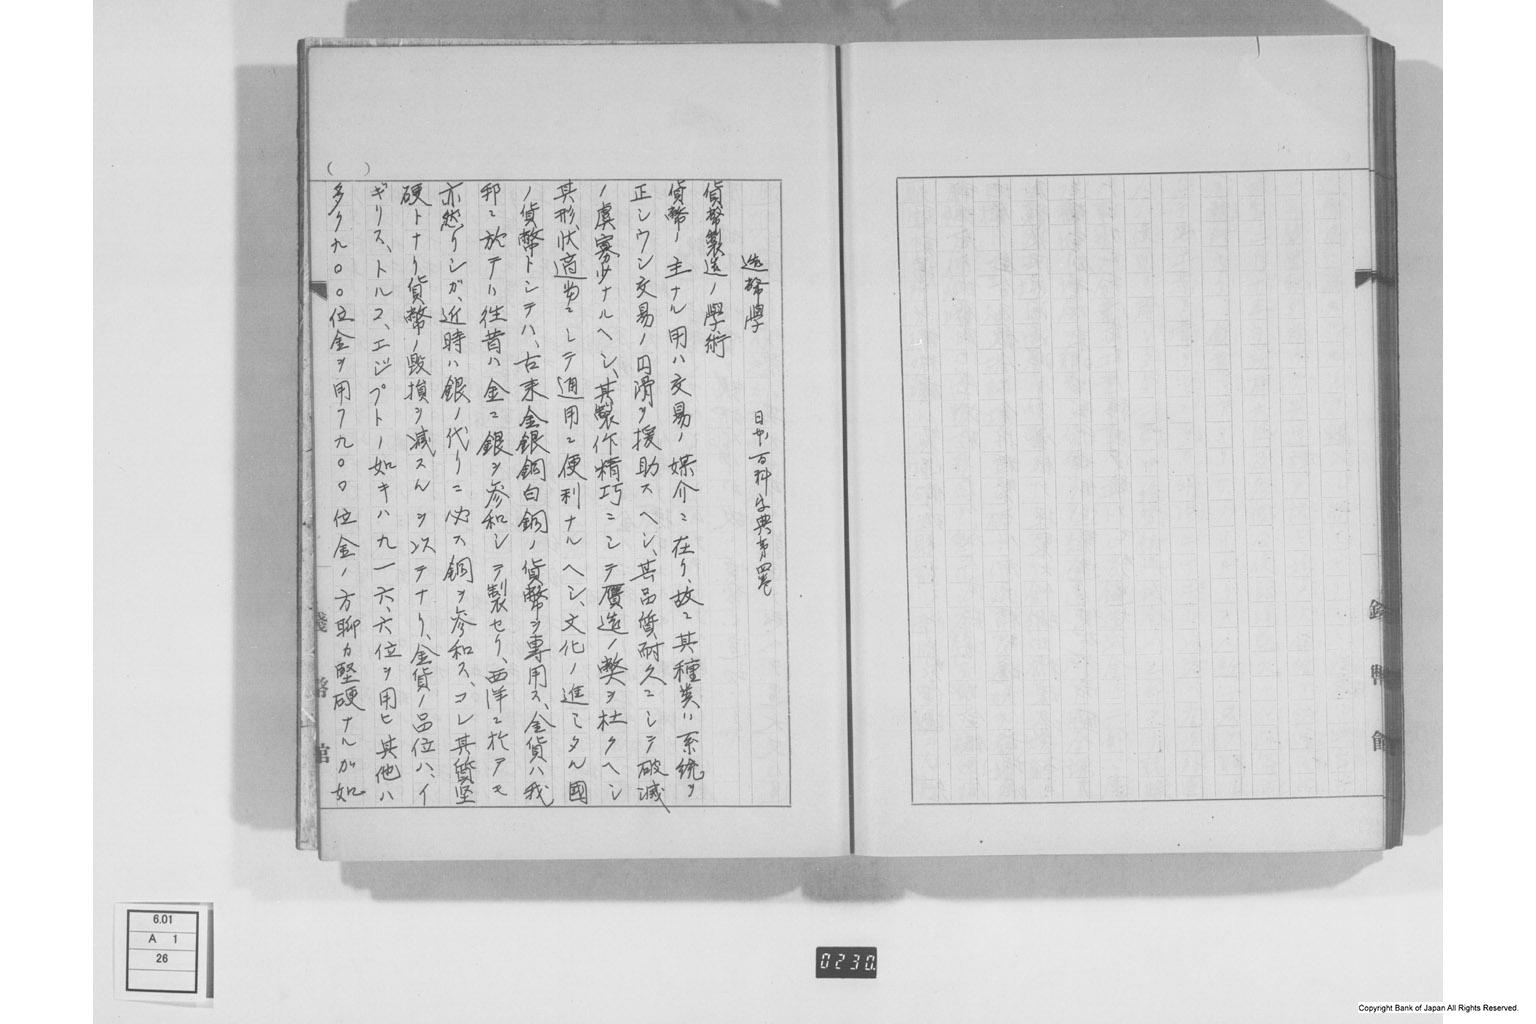 造幣學
日本百科大典第四巻
貨幣製造ノ學術
貨幣ノ主ナル用ハ交易ノ媒介ニ在リ、故ニ其種類ハ系統ヲ
正シウシ交易ノ円滑ヲ援助スヘシ、其品質耐久ニシテ破滅
ノ虞寡少ナルヘシ、其製作精巧ニシテ贋造ノ獘ヲ杜クヘシ
其形状適当ニシテ通用ニ便利ナルヘシ、文化ノ進ミタル國
ノ貨幣トシテハ、古来金銀銅白銅ノ貨幣ヲ専用ス、金貨ハ我
邦ニ於テハ徃昔ハ金ニ銀ヲ参和シテ製セリ、西洋ニ於アモ
亦然リシガ、近時ハ銀ノ代リニ必ス銅ヲ参和ス、コレ其質堅
硬トナリ貨幣ノ毀損ヲ減スルヲ以テナリ、金貨ノ品位ハ、イ
ギリス、トルコ、エジプトノ如キハ九一六、六位ヲ用ヒ其他ハ
多ク九〇〇位金ヲ用フ九〇〇位金ノ方聊カ堅硬ナルガ如
(   )
錢幣館
6.01
A 1
26
0230.
Copyright Bank of Japan All Rights Reserved.